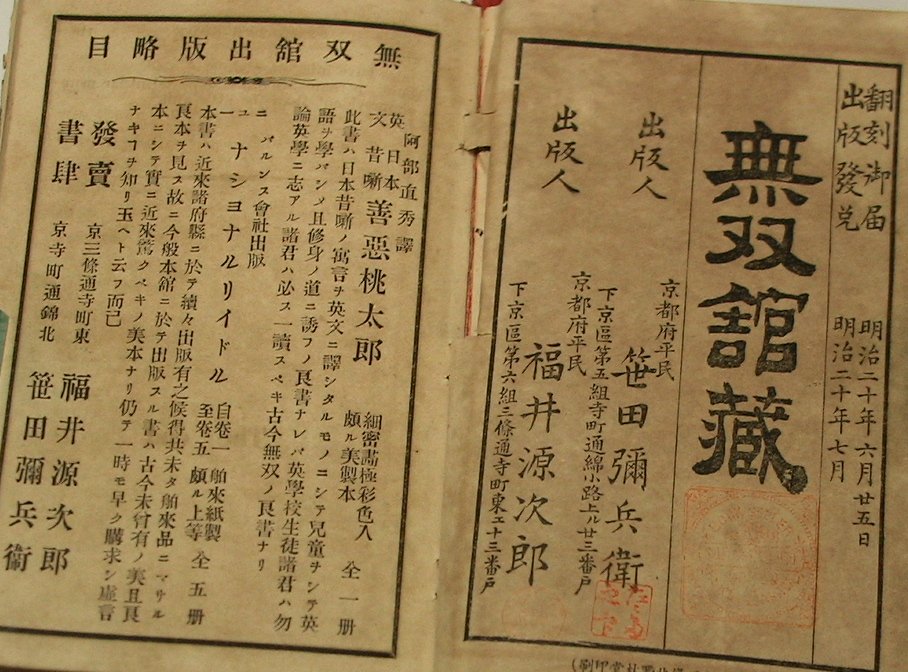 翻刻御届 明治二十年六月廿五日
出版發兌 明治二十年七月
無双舘藏
京都府平民
出版人 笹田彌兵衛
下京區第五組寺町通綿小路上ル廿三番戸
京都府平民
出版人 福井源次郎
下京區第六組三條通寺町東エ十三番戸
無双舘出版略目
阿部直秀譯
英文 日本昔噺 善惡桃太郎 細密畵極彩色入 頗ル美製本 全一册
此書ハ日本昔噺ノ寓言ヲ英文ニ譯シタルモノニシテ兒童ヲシテ英
語ヲ學バシメ且修身ノ道ニ誘フノ良書ナレバ英學校生徒諸君ハ勿
論英學ニ志アル諸君ハ必ス一讀スベキ古今無双ノ良書ナリ
バルンス會社出版
ニューナシヨナルリイドル 自卷一至卷五 舶來紙製頗ル上等 全五册
本書ハ近來諸府縣ニ於テ續々出版有之候得共未タ舶來品ニマサル
良本ヲ見ス故ニ今般本舘ニ於テ出版スル書ハ古今未曾有ノ美且良
本ニシテ實ニ近來驚クベキノ美本ナリ仍テ一時モ早ク購求シ虚言
ナキヿヲ知リ玉ヘト云フ而已
發賣 京三條通寺町東 福井源次郎
書肆 京寺町通錦北 笹田彌兵衛